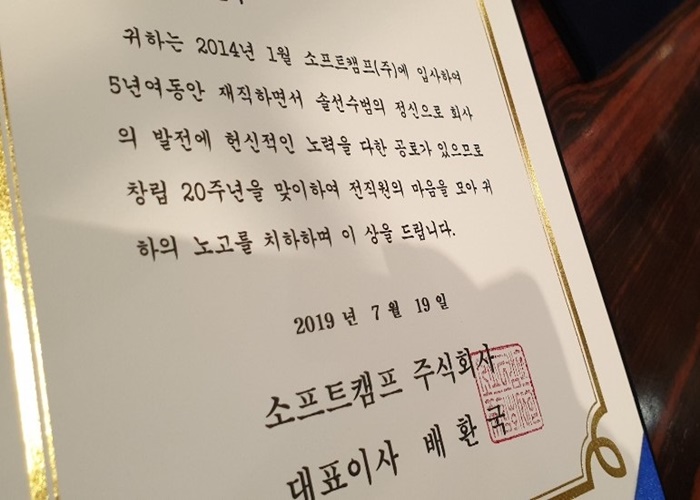 귀하는 2014년 1월 소프트캠프(주)에 입사하여
5년여동안 재직하면서 솔선수범의 정신으로 회사
의 발전에 헌신적인 노력을 다한 공로가 있으므로
창립 20주년을 맞이하여 전직원의 마음을 모아 귀
하의 노고를 치하하며 이 상을 드립니다.
2019 년 7 월 19 일
소프트캠프 주식회사
대표이사 배 환 국